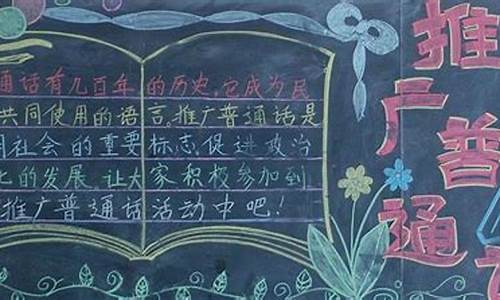 通话有几百年的历史,它成为民
共同使用的语言。推广普通话是
社会的重要标志,促进政治
的发展。让大家积极参加到
推广普通话活动中吧!
推广普通